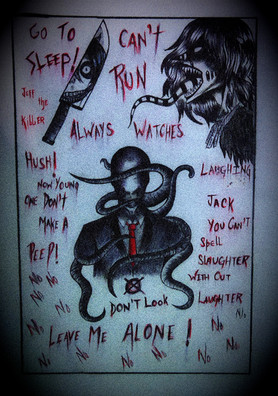 GO TO
SLEEP!
Jeff the
Killer
CAN'T
RUN
ALWAYS WATCHES
HUSH!
NOW YOUNG
ONE DON'T
MAKE A
PEEP!
LAUGHING
JACK
YOU CAN'T
Spell
SLAUGHTER
WITH OUT
LAUGHTER
DON'T LOOK
LEAVE ME ALONE!
No No
No No No
No No
No
No No No No No No
No No